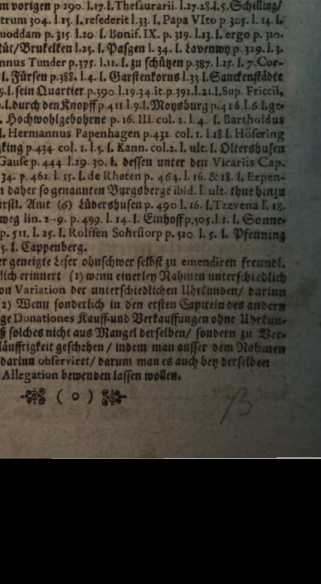 m vorigen p 290. l.17. l. Thesaurarii. l.27.28.l.5. Schilling/
trum 304. l 15. l. resederit l.33. l. Papa VIto p 305. l. 14. l.
uoddam p. 315 l.10. l. Bonif. IX. p. 319. l.13. l. ergo p. 320.
tüt/ Brukelken l.25. l. Pasgen l. 34. l. Lavenwy p. 329. l. 3.
nnus Tunder p.375. l.11. l. zu schützen p.387. l.25. l. 7. Cor-
l. Fürsen p.388. l.4. l. Garstenkorns l.33 l. Sanckenstädte
9.l. sein Quartier p.390 l.19.34. it. p.391.l.21.l. Sup. Friccii,
.l. durch den Knopff p 411 l.9.l. Moysburg p.416 l.6.l.ge-
. Hochwohlgebohrne p. 16. III. col. 2. l. 4. l. Bartholdus
l. Hermannus Papenhagen p.431. col. 1. l 18 l. Höfering
king p 434 col. 1. l. 5. l. Kann. col.2. l. ult. l. Oltershusen
Gause p. 444 l.29. 30. l. dessen unter den Vicariis Cap.
34. p. 462 l. 15. l. de Rhoten p. 464. l. 16. & 18. l. Expen-
n daher so genannten Burgsberge ibid. l. ult. thue hinzu
fürstl. Amt (6) Lüdershusen p. 490 l. 16. l. Trevena l. 18.
weg lin. 2-9. p. 499. l. 14. l. Einhoff p,505.l.1. l. Sonne-
p. 511. l. 25. l. Rolifen Sohrüorp p. 510 l. 5. l. Pfenning
5. l. Cappenberg.
er geneigte Leser ohnschwer selbst zu emendiren freundl.
lich erinnert (1) wenn einerley Nahmen unterschiedlich
on Variation der unterschiedlichen Uhrkunden/ darinn
2) Wenn sonderlich in den ersten Capiteln des andern
ge Donationes Kauff-und Verkauffungen ohne Uhrkun-
ß solches nicht aus Mangel derselben/ sondern zu Ver-
läufftigkeit geschehen/ indem man ausser dem Nahmen
darinn observiret/ darum man es auch bey derselben
Allegation bewenden lassen wollen.
( o )